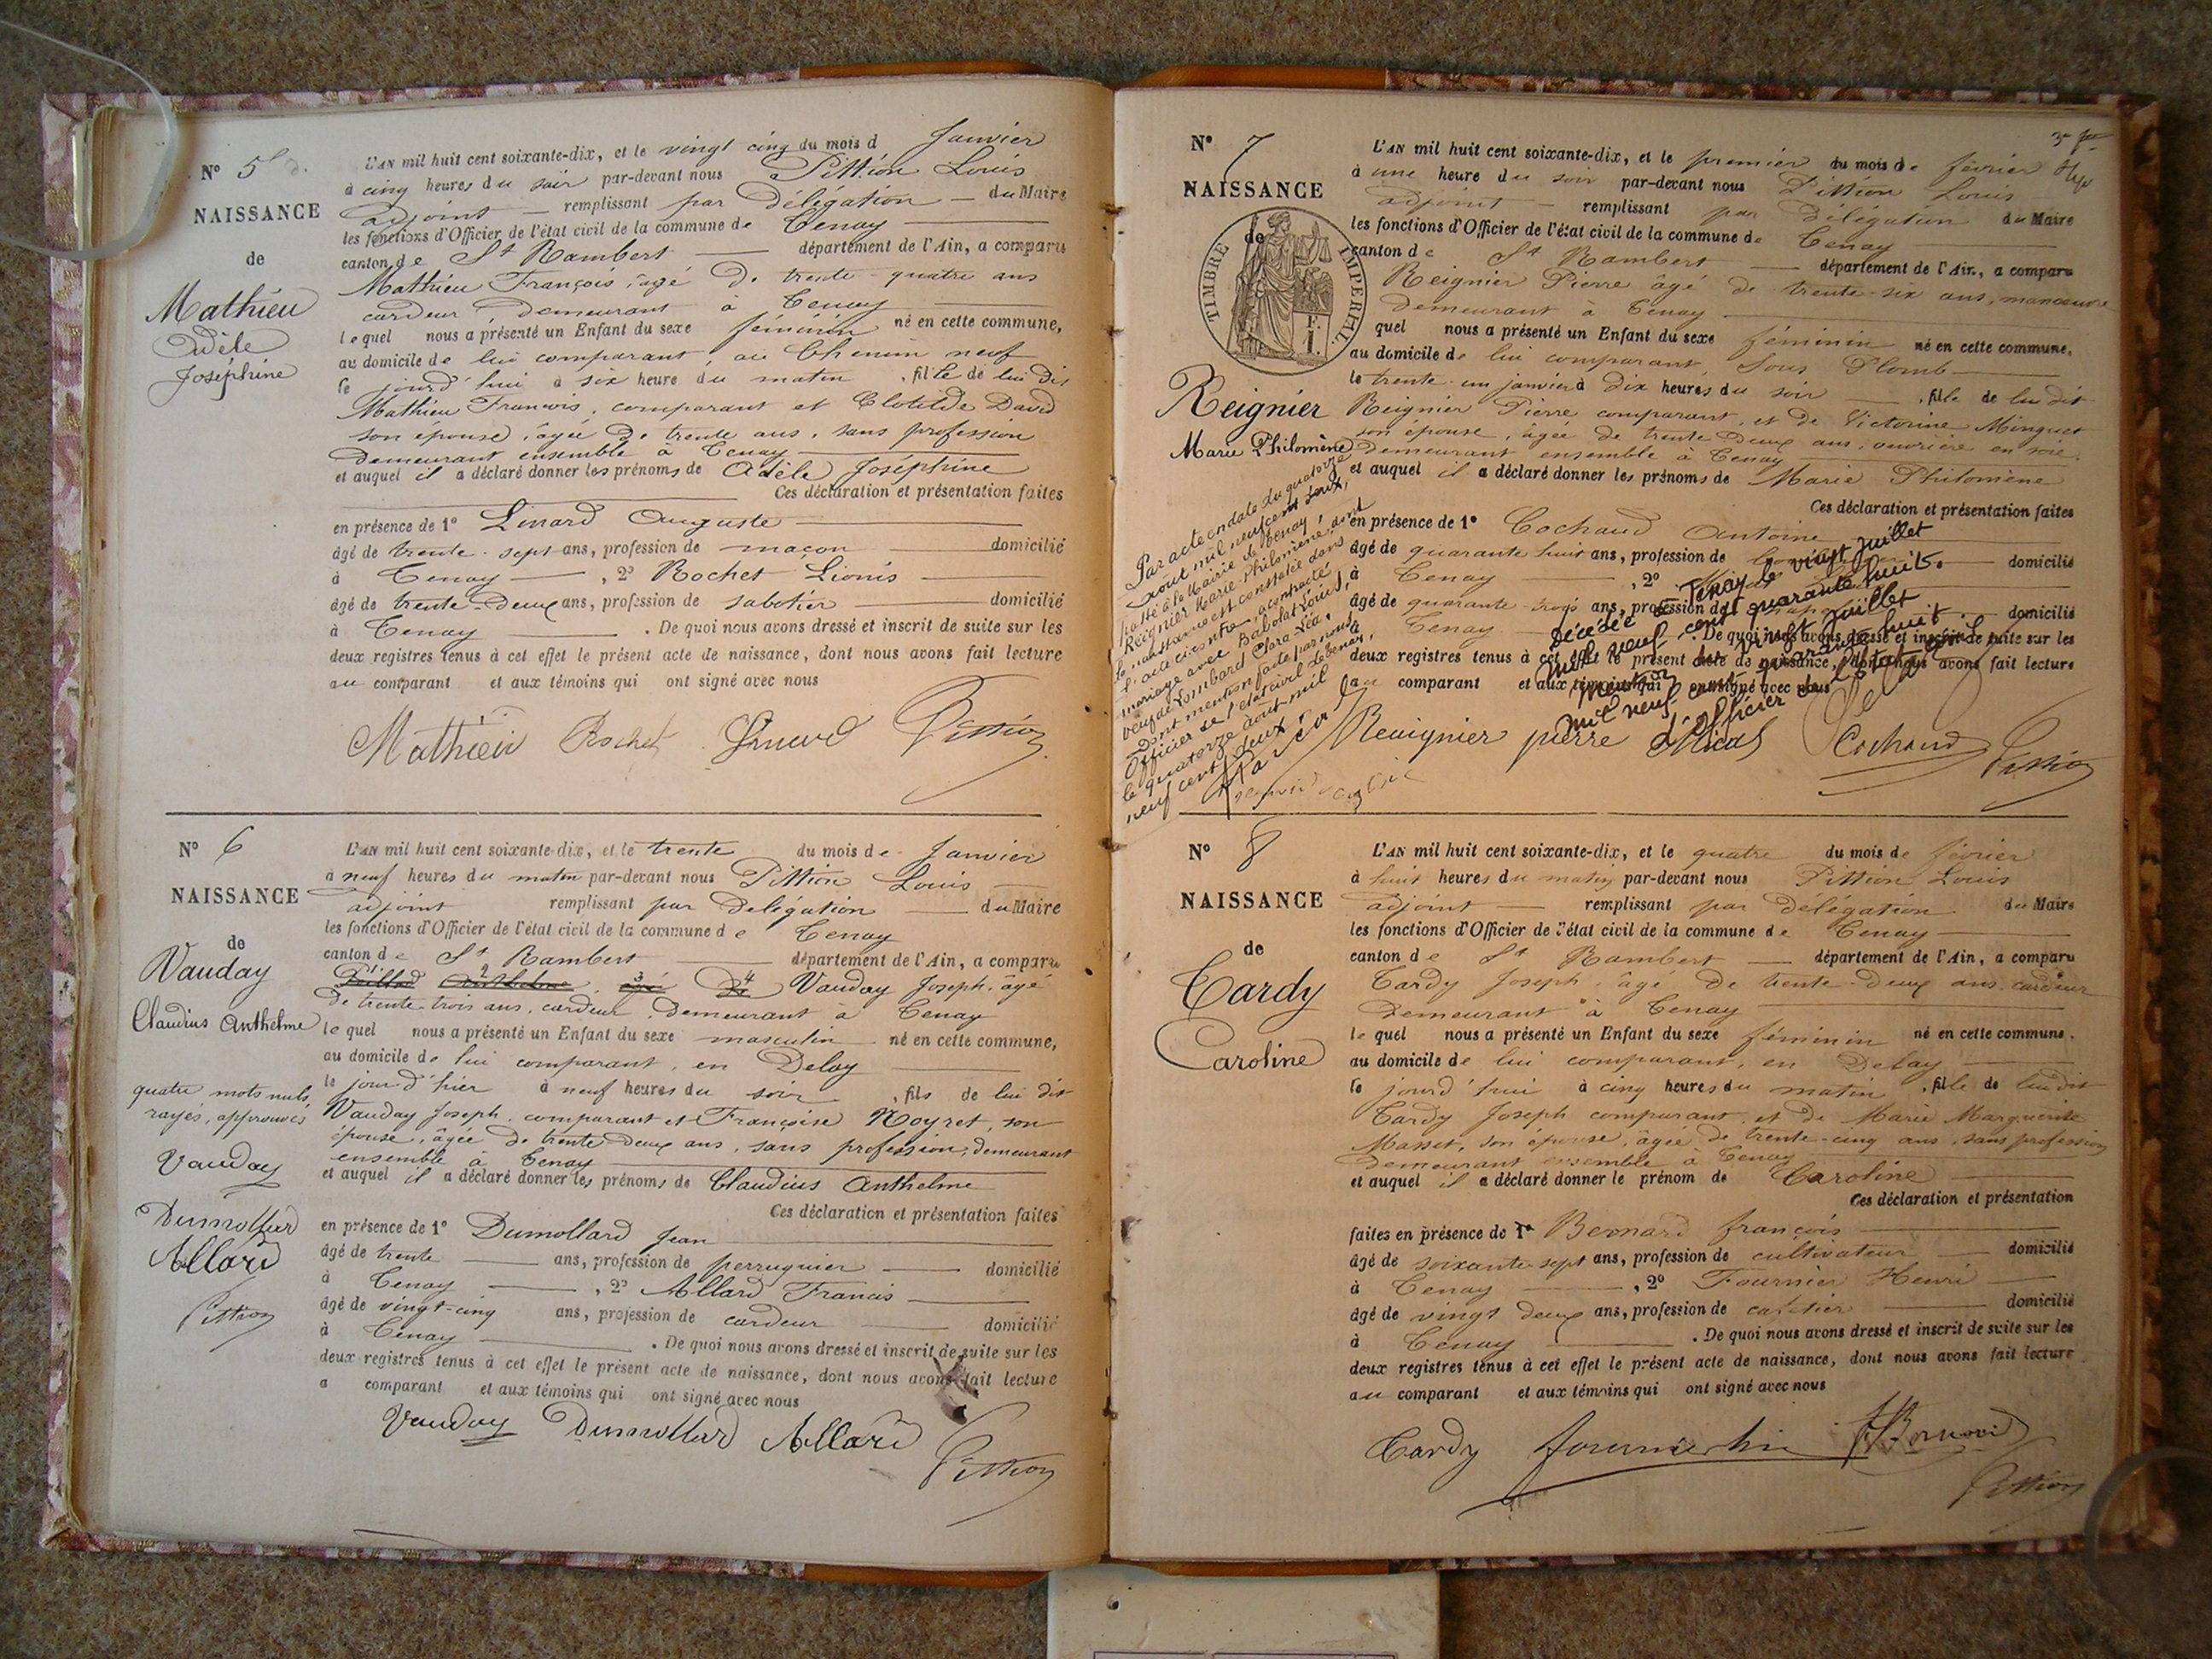 N° 5
NAISSANCE
de
Mathieu
Adèle
Joséphine
L'AN mil huit cent soixante-dix, et le vingt cinq du mois d Janvier
à cinq heures du soir par-devant nous Pittion Louis
adjoint — remplissant par Délégation — du Maire
les fonctions d'Officier de l'état civil de la commune de Tenay
canton de St Rambert département de l'Ain, a comparu
Mathieu François, âgé de trente-quatre ans
cardeur demeurant à Tenay
lequel nous a présenté un Enfant du sexe féminin né en cette commune,
au domicile de lui comparant, au Chemin neuf
le jourd'hui à six heure du matin , fille de lui dit
Mathieu François, comparant et Clotilde David
son épouse, âgée de trente ans, sans profession
demeurant ensemble à Tenay
et auquel il a déclaré donner les prénoms de Adèle Joséphine
Ces déclaration et présentation faites
en présence de 1° Linard Auguste
âgé de trente-sept ans, profession de maçon domicilié
à Tenay , 2° Rochet Lionis
âgé de trente-deux ans, profession de sabotier domicilié
à Tenay . De quoi nous avons dressé et inscrit de suite sur les
deux registres tenus à cet effet le présent acte de naissance, dont nous avons fait lecture
au comparant et aux témoins qui ont signé avec nous
Mathieu Rochet Pittion
N° 6
NAISSANCE
de
Vauday
Claudius Anthelme
quatre mots nuls,
rayés, approuvés
Vauday
Dumollard
Allard
Pittion
L'AN mil huit cent soixante-dix, et le trente du mois de Janvier
à neuf heures du matin par-devant nous Pittion Louis
adjoint remplissant par Delégation du Maire
les fonctions d'Officier de l'état civil de la commune de Tenay
canton de St Rambert département de l'Ain, a comparu
Vauday Joseph, âgé
de trente-trois ans, cardeur, demeurant à Tenay
lequel nous a présenté un Enfant du sexe masculin né en cette commune,
au domicile de lui comparant, en Delay
le jour d'hier à neuf heures du soir , fils de lui dit
Vauday Joseph, comparant et Françoise Noyret, son
épouse, âgée de trente-deux ans, sans profession, demeurant
ensemble à Tenay
et auquel il a déclaré donner les prénoms de Claudius Anthelme
Ces déclaration et présentation faites
en présence de 1° Dumollard Jean
âgé de trente ans, profession de perruquier domicilié
à Tenay , 2° Allard Francis
âgé de vingt-cinq ans, profession de cardeur domicilié
à Tenay . De quoi nous avons dressé et inscrit de suite sur les
deux registres tenus à cet effet le présent acte de naissance, dont nous avons fait lecture
a comparant et aux témoins qui ont signé avec nous
Vauday Dumollard Allard Pittion
N° 7
NAISSANCE
de
TIMBRE IMPERIAL
Reignier
Marie Philomène
Par acte en date du quatorze
août mil neuf cent deux,
passé à la Mairie de Tenay,
Reignier Marie Philomène, dont
la naissance est constatée dans
l'acte ci-contre, a contracté
mariage avec Babolat Louis,
veuf de Lombard Clara Léa.
Dont mention faite par nous
Officier de l'état civil de Tenay,
le quatorze août mil
neuf cent deux.
L'AN mil huit cent soixante-dix, et le premier du mois de février
à une heure du soir par-devant nous Pittion Louis
adjoint — remplissant par délégation du Maire
les fonctions d'Officier de l'état civil de la commune de Tenay
canton de St Rambert département de l'Ain, a comparu
Reignier Pierre âgé de trente-six ans, manœuvre
demeurant à Tenay
quel nous a présenté un Enfant du sexe féminin né en cette commune,
au domicile de lui comparant, Sous Plomb
le trente-un janvier à dix heures du soir , fille de lui dit
Reignier Pierre comparant, et de Victorine Minguet
son épouse, âgée de trente deux ans, ouvrière en soie,
demeurant ensemble à Tenay
et auquel il a déclaré donner les prénoms de Marie Philomène
Ces déclaration et présentation faites
en présence de 1° Cochaud Antoine
âgé de quarante huit ans, profession de domicilié
à Tenay , 2°
âgé de quarante-trois ans, profession de domicilié
à Tenay . De quoi nous avons dressé et inscrit de suite sur les
deux registres tenus à cet effet le présent acte de naissance, dont nous avons fait lecture
au comparant et aux témoins qui ont signé avec nous
Décédée à Tenay le vingt juillet
mil neuf cent quarante huit.
Mention du vingt juillet
mil neuf cent quarante huit
L'Officier de l'état civil
Reuignier pierre Micol Cochaud Pittion
N° 8
NAISSANCE
de
Tardy
Caroline
L'AN mil huit cent soixante-dix, et le quatre du mois de février
à huit heures du matin par-devant nous Pittion Louis
adjoint — remplissant par delégation du Maire
les fonctions d'Officier de l'état civil de la commune de Tenay
canton de St Rambert département de l'Ain, a comparu
Tardy Joseph, âgé de trente-deux ans, cardeur
demeurant à Tenay
lequel nous a présenté un Enfant du sexe féminin né en cette commune,
au domicile de lui comparant, en Delay
le jourd'hui à cinq heures du matin , fille de lui dit
Tardy Joseph comparant, et de Marie Marguerite
Masset, son épouse, âgée de trente-cinq ans, sans profession
demeurant ensemble à Tenay
et auquel il a déclaré donner le prénom de Caroline
Ces déclaration et présentation
faites en présence de 1° Bernard françois
âgé de soixante-sept ans, profession de cultivateur domicilié
à Tenay , 2° Fournier Henri
âgé de vingt deux ans, profession de cafetier domicilié
à Tenay . De quoi nous avons dressé et inscrit de suite sur les
deux registres tenus à cet effet le présent acte de naissance, dont nous avons fait lecture
au comparant et aux témoins qui ont signé avec nous
Tardy Pittion